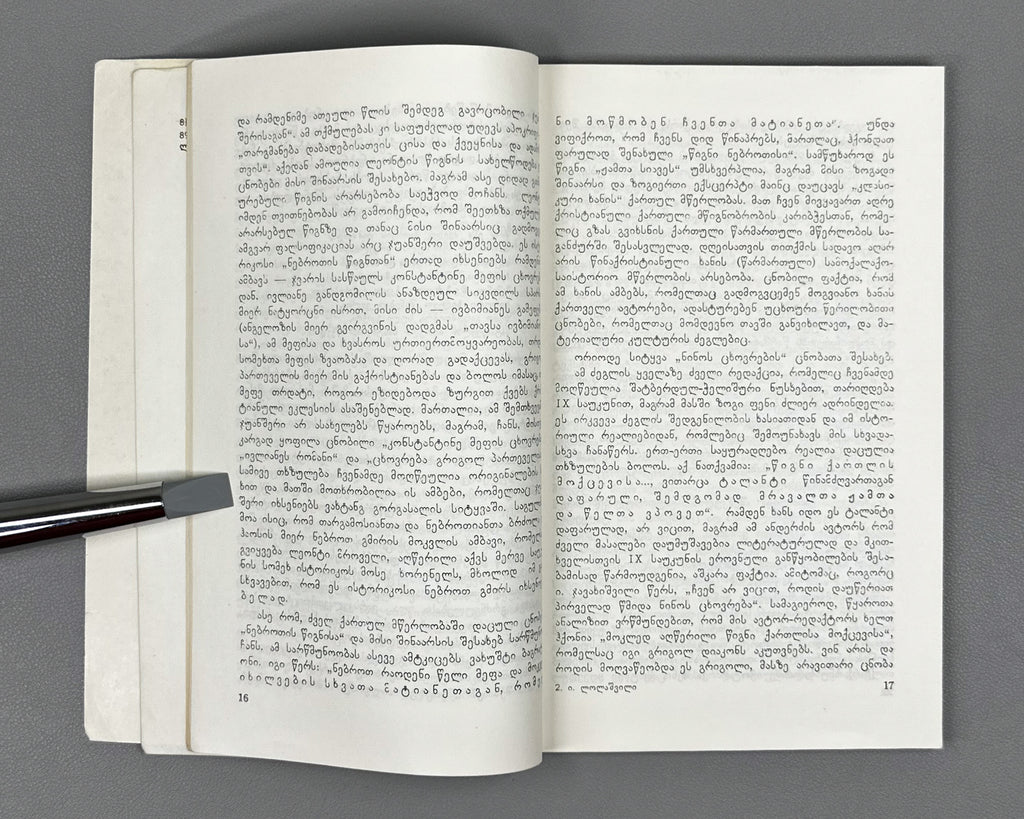 და რამდენიმე ათეული წლის შემდეგ გავრცობილი
შერისაგან“. ამ თქმულებას კი საფუძვლად უდევს
„თარგმანება დაბადებისათვის ცისა და ქვეყნისა და
თვის“. აქედან ამოუღია ლეონტის წიგნის
ცნობები მისი შინაარსის შესახებო. მაგრამ ასე დიდად
ურებული წიგნის არარსებობა საეჭვოდ მოჩანს.
იმდენ თვითნებობას არ გამოიჩენდა, რომ შეეთხზა
არარსებულ წიგნზე და თანაც მისი შინაარსიც
ამგვარ ფალსიფიკაციას არც ჯუანშერი დაუშვებდა. ეს
რიკოსი „ნებროთის წიგნთან“ ერთად იხსენიებს
ამბავა — ჯვარის სასწაულს კონსტანტინე მეფის
დან. ივლიანე განდგომილის ანაზდეულ სიკვდილს
მიერ ნატყორცნი ისრით, მისი ძის — ივბიმიანეს
(ანგელოზის მიერ გვირგვინის დადგმას „თავსა
სა“), ამ მეფისა და ხვასროს ურთიერთმოყვარეობას,
სომეხთა მეფის ზვაობასა და ღორად გადაქცევას,
პართეველის მიერ მის გაქრისტიანებას და ბოლოს
მეფე თრდატი, როგორ ეზიდებოდა ზურგით ქვებს
ტიანული ეკლესიის ასაშენებლად. მართალია, ამ
ჯუანშერი არ ასახელებს წყაროებს, მაგრამ, ჩანს,
კარგად ყოფილა ცნობილი „კონსტანტინე მეფის
„ივლიანეს რომანი“ და „ცხოვრება გრიგოლ
სამივე თხზულება ჩვენამდე მოღწეულია ორიგინალების
ხით და მათში მოთხრობილია ის ამბები, რომელთაც
შერი იხსენიებს ვახტანგ გორგასალის სიტყვაში.
მოა ისიც, რომ თარგამოსიანთა და ნებროთიანთა
ჰაოსის მიერ ნებროთ გმირის მოკვლის ამბავი,
გვიყვება ლეონტი მროველი, აღწერილი აქვს მერვე
ნის სომეხ ისტორიკოს მოსე ხორენელს, მხოლოდ იმ
სხვავებით, რომ ეს ისტორიკოსი ნებროთ გმირს
ბელად.
ასე რომ, ძველ ქართულ მწერლობაში დაცული
„ნებროთის წიგნისა“ და მისი შინაარსის შესახებ
ჩანს. ამ სარწმუნოობას ასევე ამტკიცებს ვახუშტი
ონი. იგი წერს: „ნებროთ რაოდენი წელი მეფა და
იხილვების სხვათა მატიანეთაგან,
16
ნი მოწმობენ ჩვენთა მატიანეთა“. უნდა
ვიფიქროთ, რომ ჩვენს დიდ წინაპრებს, მართლაც, ჰქონდათ
ფარულად შენახული „წიგნი ნებროთისი“. სამწუხაროდ ეს
წიგნი „ჟამთა სიავეს“ უმსხვერპლია, მაგრამ მისი ზოგადი
შინაარსი და ზოგიერთი ექსცერპტი მაინც დაუცავს „კლასი-
კური ხანის“ ქართულ მწერლობას. მათ ჩვენ მივყავართ ადრე
ქრისტიანული ქართული მწიგნობრობის კარიბჭესთან, რომე-
ლიც გზას გვიხსნის ქართული წარმართული მწერლობის სა-
განძურში შესასვლელად. დღეისათვის თითქმის სადავო აღარ
არის წინაქრისტიანული ხანის (წარმართული) სამოქალაქო-
საისტორიო მწერლობის არსებობა. ცნობილი ფაქტია, რომ
ამ ხანის ამბებს, რომელთაც გადმოგვცემენ მოგვიანო ხანის
ქართველი ავტორები, ადასტურებენ უცხოური წერილობითი
ცნობები, რომელთაც მომდევნო თავში განვიხილავთ, და მა-
ტერიალური კულტურის ძეგლებიც.
ორიოდე სიტყვა „ნინოს ცხოვრების“ ცნობათა შესახებ.
ამ ძეგლის ყველაზე ძველი რედაქცია, რომელიც ჩვენამდე
მოღწეულია შატბერდულ-ჭელიშური ნუსხებით, თარიღდება
IX საუკუნით, მაგრამ მასში ზოგი ფენი ძლიერ ადრინდელია.
ეს ირკვევა ძეგლის შედგენილობის ხასიათიდან და იმ ისტო-
რიული რეალიებიდან, რომლებიც შემოუნახავს მის სხვადა-
სხვა ჩანაწერს. ერთ-ერთი საყურადღებო რეალია დაცულია
თხზულების ბოლოს. აქ ნათქვამია: „წიგნი ქართლის
მოქცევისა..., ვითარცა ტალანტი წინამძღვართაგან
დაფარული, შემდგომად მრავალთა ჟამთა
და წელთა ვპოვეთ“. რამდენ ხანს იდო ეს ტალანტი
დაფარულად, არ ვიცით, მაგრამ ამ ანდერძის ავტორს რომ
ძველი მასალები დაუმუშავებია ლიტერატურულად და მკით-
ხველისთვის IX საუკუნის ეროვნული განწყობილების შესა-
ბამისად წარმოუდგენია, აშკარა ფაქტია. ამიტომაც, როგორც
ი. ჯავახიშვილი წერს, „ჩვენ არ ვიცით, როდის დაუწერიათ
პირველად წმიდა ნინოს ცხოვრება“. სამაგიეროდ, წყაროთა
ანალიზით ვრწმუნდებით, რომ მის ავტორ-რედაქტორს ხელთ
ჰქონია „მოკლედ აღწერილი წიგნი ქართლისა მოქცევისა“,
რომელსაც იგი გრიგოლ დიაკონს აკუთვნებს. ვინ არის და
როდის მოღვაწეობდა ეს გრიგოლი, მასზე არავითარი ცნობა
2. ი. ლოლაშვილი
17